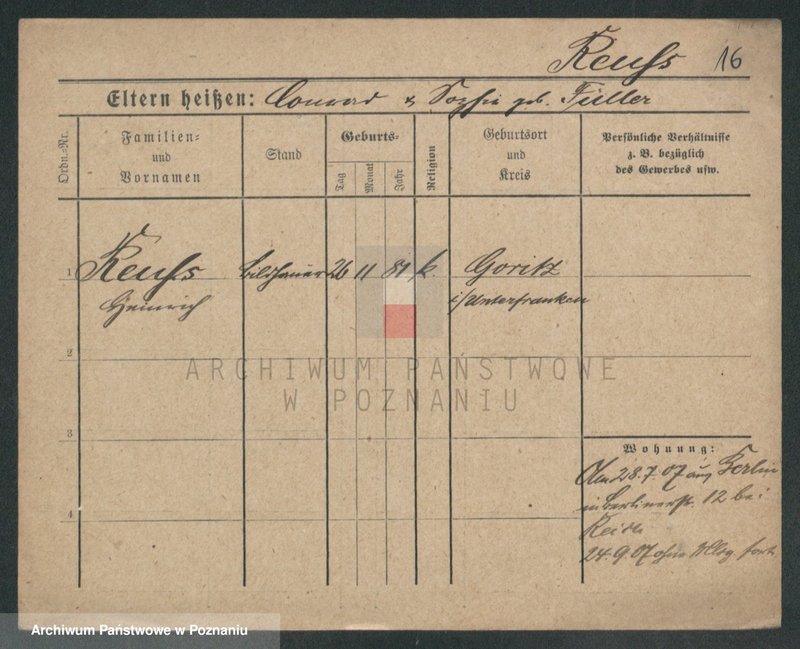 Reuſs 16
Eltern heißen: Conrad & Sophie geb. Füller
Ordn.=Nr.
Familien=
und
Vornamen
Stand
Geburts=
Tag
Monat
Jahr
Religion
Geburtsort
und
Kreis
Persönliche Verhältnisse
z. B. bezüglich
des Gewerbes usw.
1 Reuſs Bildhauer 26 11 81 k. Goritz
Heinrich i/Unterfranken
2
ARCHIWUM PAŃSTWOWE
W POZNANIU
3
Wohnung:
28.7.07 aus Berlin
in Berlinerstr. 12 bei
4
24.9.07 ohne fort
Archiwum Państwowe w Poznaniu